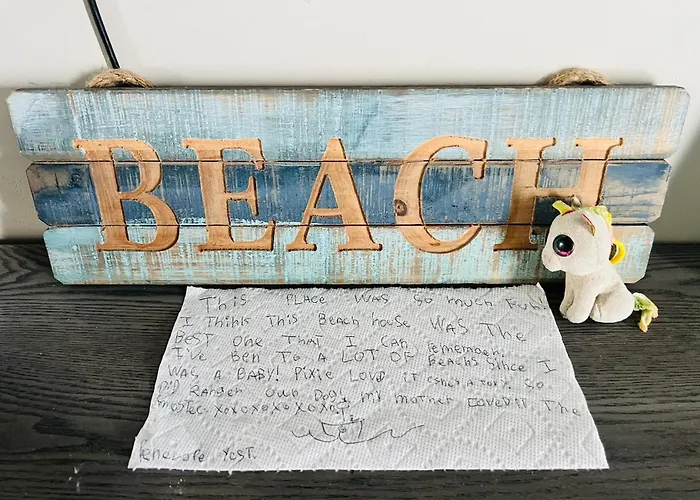 BEACH
THIS PLACE WAS SO much FUN!
I Think THIS BEACH HOUSE WAS THE
BEST ONE THAT I CAN remember!
I'VE BEN TO A LOT OF BEACHS SINCE I
WAS A BABY! PIXIE LOVD IT So
DID RANGER OUR DOG, my mother LOVED IT. THE
XOXOXOXOXOXO
Penelope YOST.